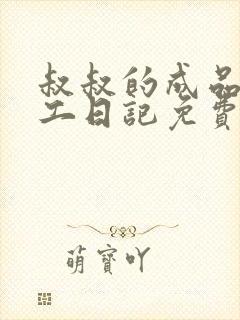 叔叔的成品
工日记免费
萌寶吖